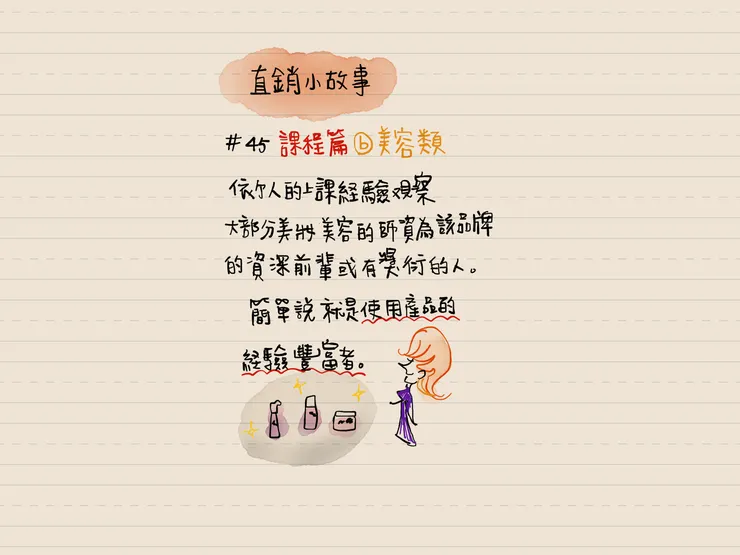 直銷小故事
#45 課程篇 ⓑ美容類
依个人的上課経驗观察
大部分美妝美容的師資為該品牌
的資深前輩或有獎衔的人。
簡單說就是使用產品的
経驗豐富者。